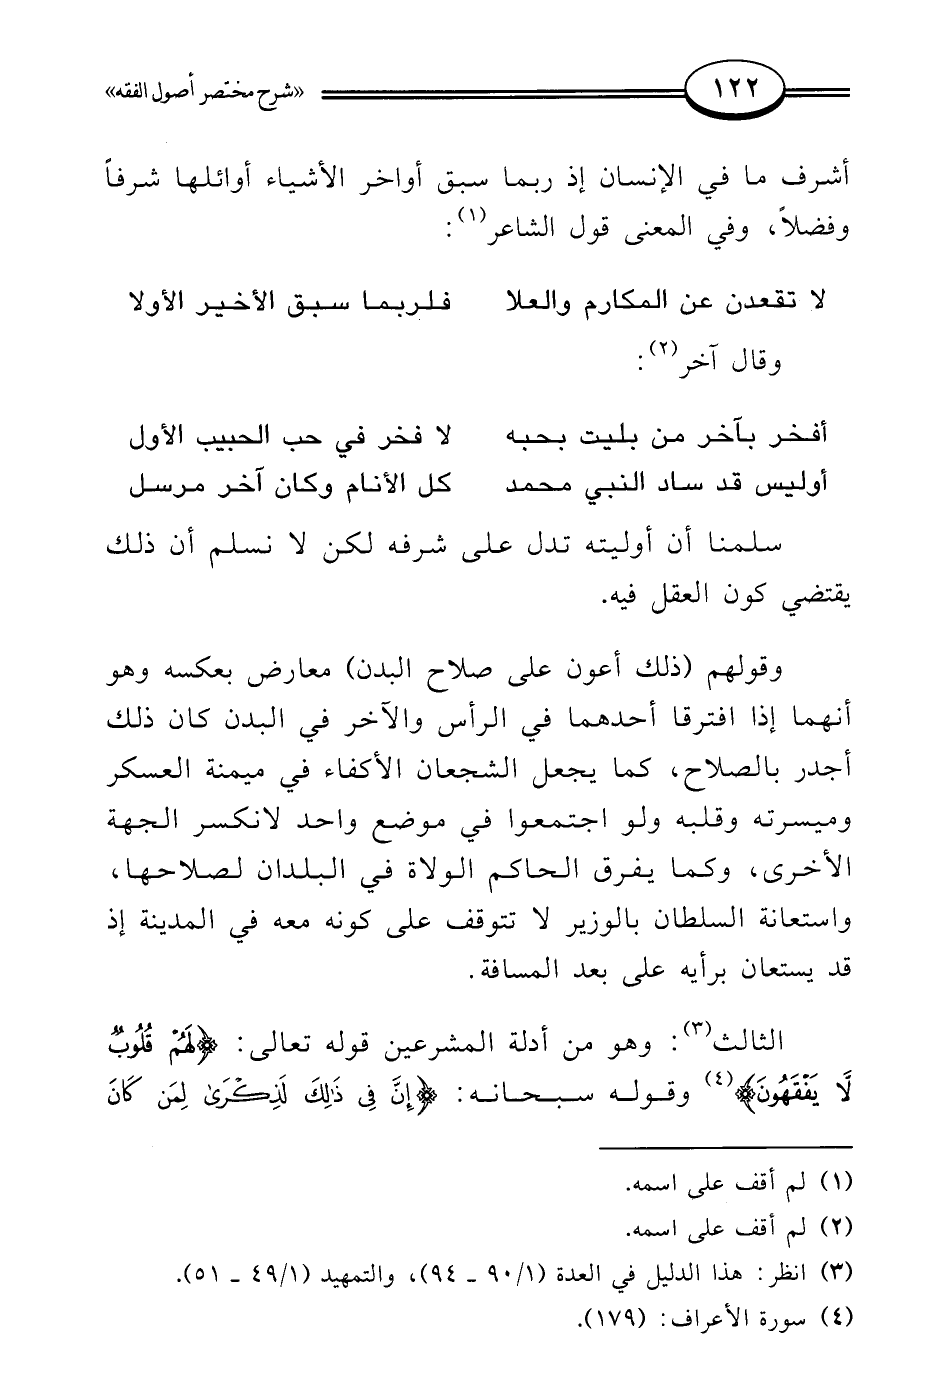 ١٢٢ «شرح مختصر أصول الفقه»
أشرف ما في الإنسان إذ ربما سبق أواخر الأشياء أوائلها شرفاً
وفضلاً، وفي المعنى قول الشاعر(١):
لا تقعدن عن المكارم والعلا فلربما سبق الأخير الأولا
وقال آخر(٢):
أفخر بآخر من بليت بحبه لا فخر في حب الحبيب الأول
أوليس قد ساد النبي محمد كل الأنام وكان آخر مرسل
سلمنا أن أوليته تدل على شرفه لكن لا نسلم أن ذلك
يقتضي كون العقل فيه.
وقولهم (ذلك أعون على صلاح البدن) معارض بعكسه وهو
أنهما إذا افترقا أحدهما في الرأس والآخر في البدن كان ذلك
أجدر بالصلاح، كما يجعل الشجعان الأكفاء في ميمنة العسكر
وميسرته وقلبه ولو اجتمعوا في موضع واحد لانكسر الجهة
الأخرى، وكما يفرق الحاكم الولاة في البلدان لصلاحها،
واستعانة السلطان بالوزير لا تتوقف على كونه معه في المدينة إذ
قد يستعان برأيه على بعد المسافة.
الثالث(٣): وهو من أدلة المشرعين قوله تعالى: ﴿لَهُمْ قُلُوبٌ
لَّا يَفْقَهُونَ﴾(٤) وقوله سبحانه: ﴿إِنَّ فِى ذَٰلِكَ لَذِكْرَىٰ لِمَن كَانَ
(١) لم أقف على اسمه.
(٢) لم أقف على اسمه.
(٣) انظر: هذا الدليل في العدة (٩٠/١ ـ ٩٤)، والتمهيد (٤٩/١ ـ ٥١).
(٤) سورة الأعراف: (١٧٩).